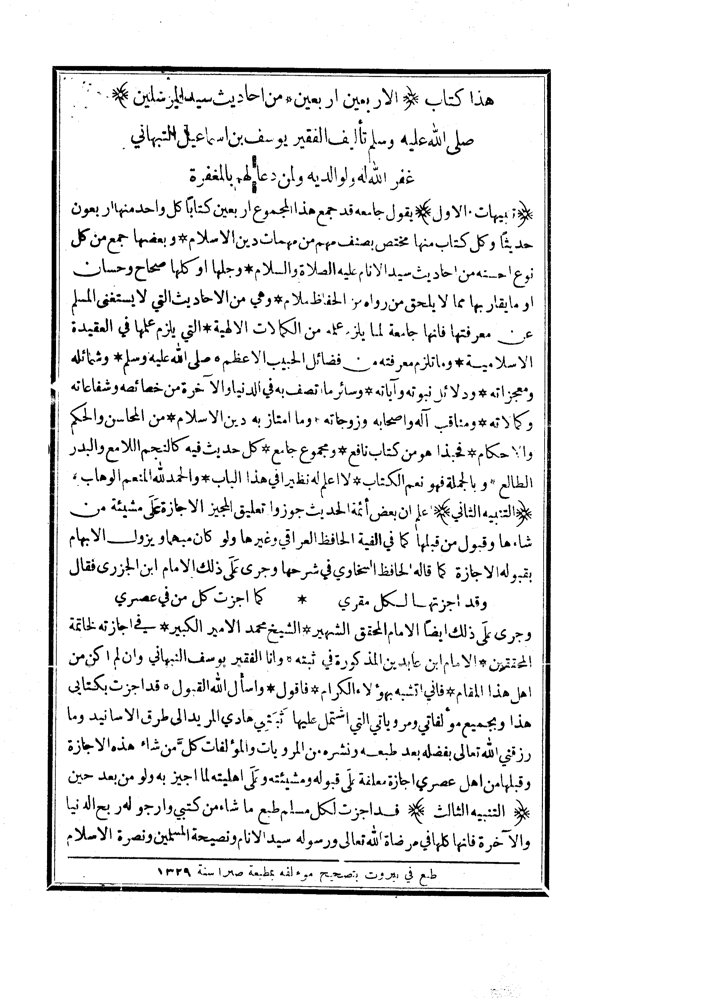 هذا كتاب ﴿ الاربعين اربعين * من احاديث سيد المرسلين ﴾
صلى الله عليه وسلم تأليف الفقير يوسف بن اسماعيل النبهاني
غفر الله له ولوالديه ولمن دعا لهم بالمغفرة
﴿تنبيهات * الاول﴾ يقول جامعه قد جمع هذا المجموع اربعين كتابًا كل واحد منها اربعون
حديثًا وكل كتاب منها مختص بصنف مهم من مهمات دين الاسلام * وبعضها جمع من كل
نوع احسنه من احاديث سيد الانام عليه الصلاة والسلام * وجلها او كلها صحاح وحسان
او ما يقاربها مما لا يلحق من رواه من الحفاظ ملام * وهي من الاحاديث التي لا يستغنى المسلم
عن معرفتها فانها جامعة لما يلزم علمه من الكمالات الالهية * التي يلزم علمها في العقيدة
الاسلامية * وما تلزم معرفته من فضائل الحبيب الاعظم * صلى الله عليه وسلم * وشمائله
ومعجزاته * ودلائل نبوته وآياته * وسائر ما اتصف به في الدنيا والآخرة من خصائصه وشفاعاته
وكمالاته * ومناقب آله واصحابه وزوجاته * وما امتاز به دين الاسلام * من المحاسن والحكم
والاحكام * فحبذا هو من كتاب نافع * ومجموع جامع * كل حديث فيه كالنجم اللامع والبدر
الطالع * وبالجملة فهو نعم الكتاب * لا اعلم له نظيرا في هذا الباب * والحمد لله المنعم الوهاب *
﴿التنبيه الثاني﴾ اعلم ان بعض أئمة الحديث جوزوا تعليق المجيز الاجازة عَلَى مشيئة من
شاءها وقبول من قبلها كما في الفية الحافظ العراقي وغيرها ولو كان مبهما ويزول الابهام
بقبوله الاجازة كما قاله الحافظ السخاوي في شرحها وجرى عَلَى ذلك الامام ابن الجزرى فقال
وقد اجزتها لكل مقري * كما اجزت كل من في عصري
وجرى عَلَى ذلك ايضًا الامام المحقق الشهير * الشيخ محمد الامير الكبير * في اجازته لخاتمة
المحققين * الامام ابن عابدين المذكورة في ثبته * وانا الفقير يوسف النبهاني وان لم اكن من
اهل هذا المقام * فاني اتشبه بهؤلاء الكرام * فاقول * واسأل الله القبول * قد اجزت بكتابي
هذا وبجميع مؤلفاتي ومروياتي التي اشتمل عليها ثَبَتي هادي المريد الى طرق الاسانيد وما
رزقني الله تعالى بفضله بعد طبعه ونشره من المرويات والمؤلفات كلَّ من شاء هذه الاجازة
وقبلها من اهل عصري اجازة معلقة عَلَى قبوله ومشيئته وعَلَى اهليته لما اجيز به ولو من بعد حين
﴿ التنبيه الثالث ﴾ قد اجزت لكل مسلم طبع ما شاء من كتبي وارجو له ربح الدنيا
والآخرة فانها كلها في مرضاة الله تعالى ورسوله سيد الانام ونصيحة المسلمين ونصرة الاسلام
طبع في بيروت بتصحيح موءلفه بمطبعة صبرا سنة ١٣٢٩